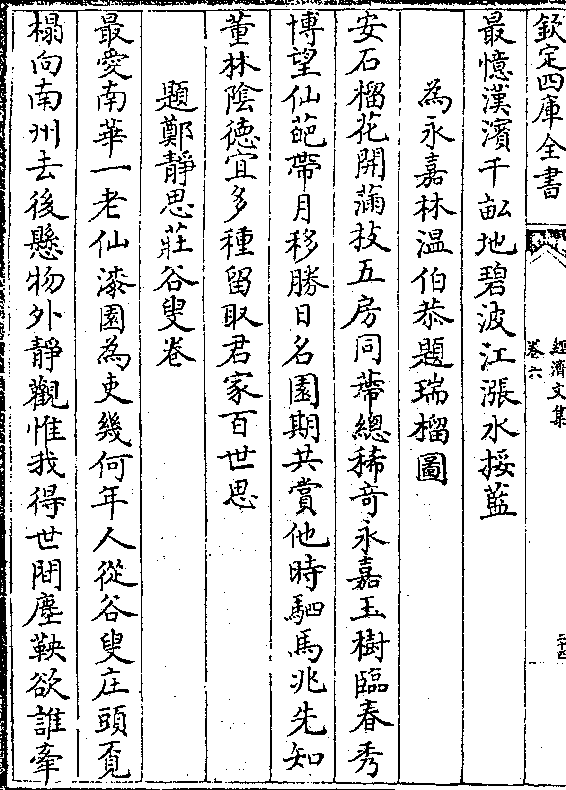 欽定四庫全書
經濟文集
卷六
二十四
最憶漢濱千畝地碧波江漲水挼藍
為永嘉林温伯恭題瑞榴圖
安石榴花開滿枝五房同蔕總稀竒永嘉玉樹臨春秀
博望仙葩帶月移勝日名園期共賞他時駟馬兆先知
董林陰徳宜多種留取君家百世思
題鄭靜思莊谷叟卷
最愛南華一老仙漆園為吏幾何年人從谷叟庄頭覔
榻向南州去後懸物外靜觀惟我得世間塵鞅欲誰牽